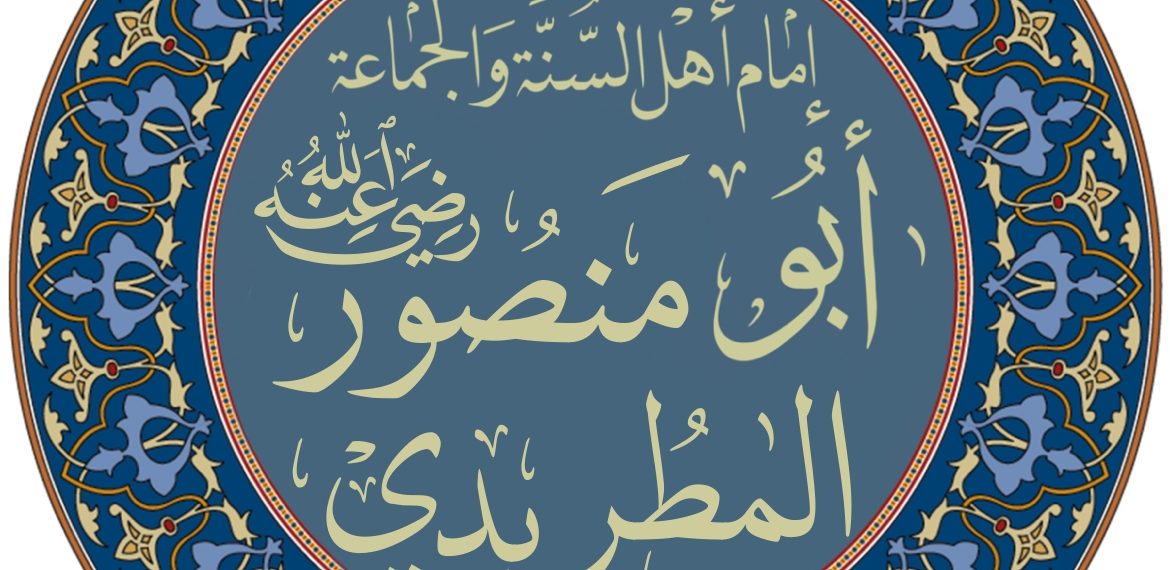 إمام أهْل السُّنَّة وَالجَمَاعة
أَبُو مَنصُور رَضِيَ اللهُ عَنهُ
المطُريدي